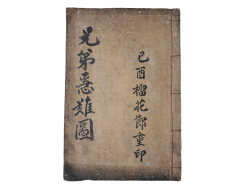 兄弟惡難圖
己酉榴花節重印